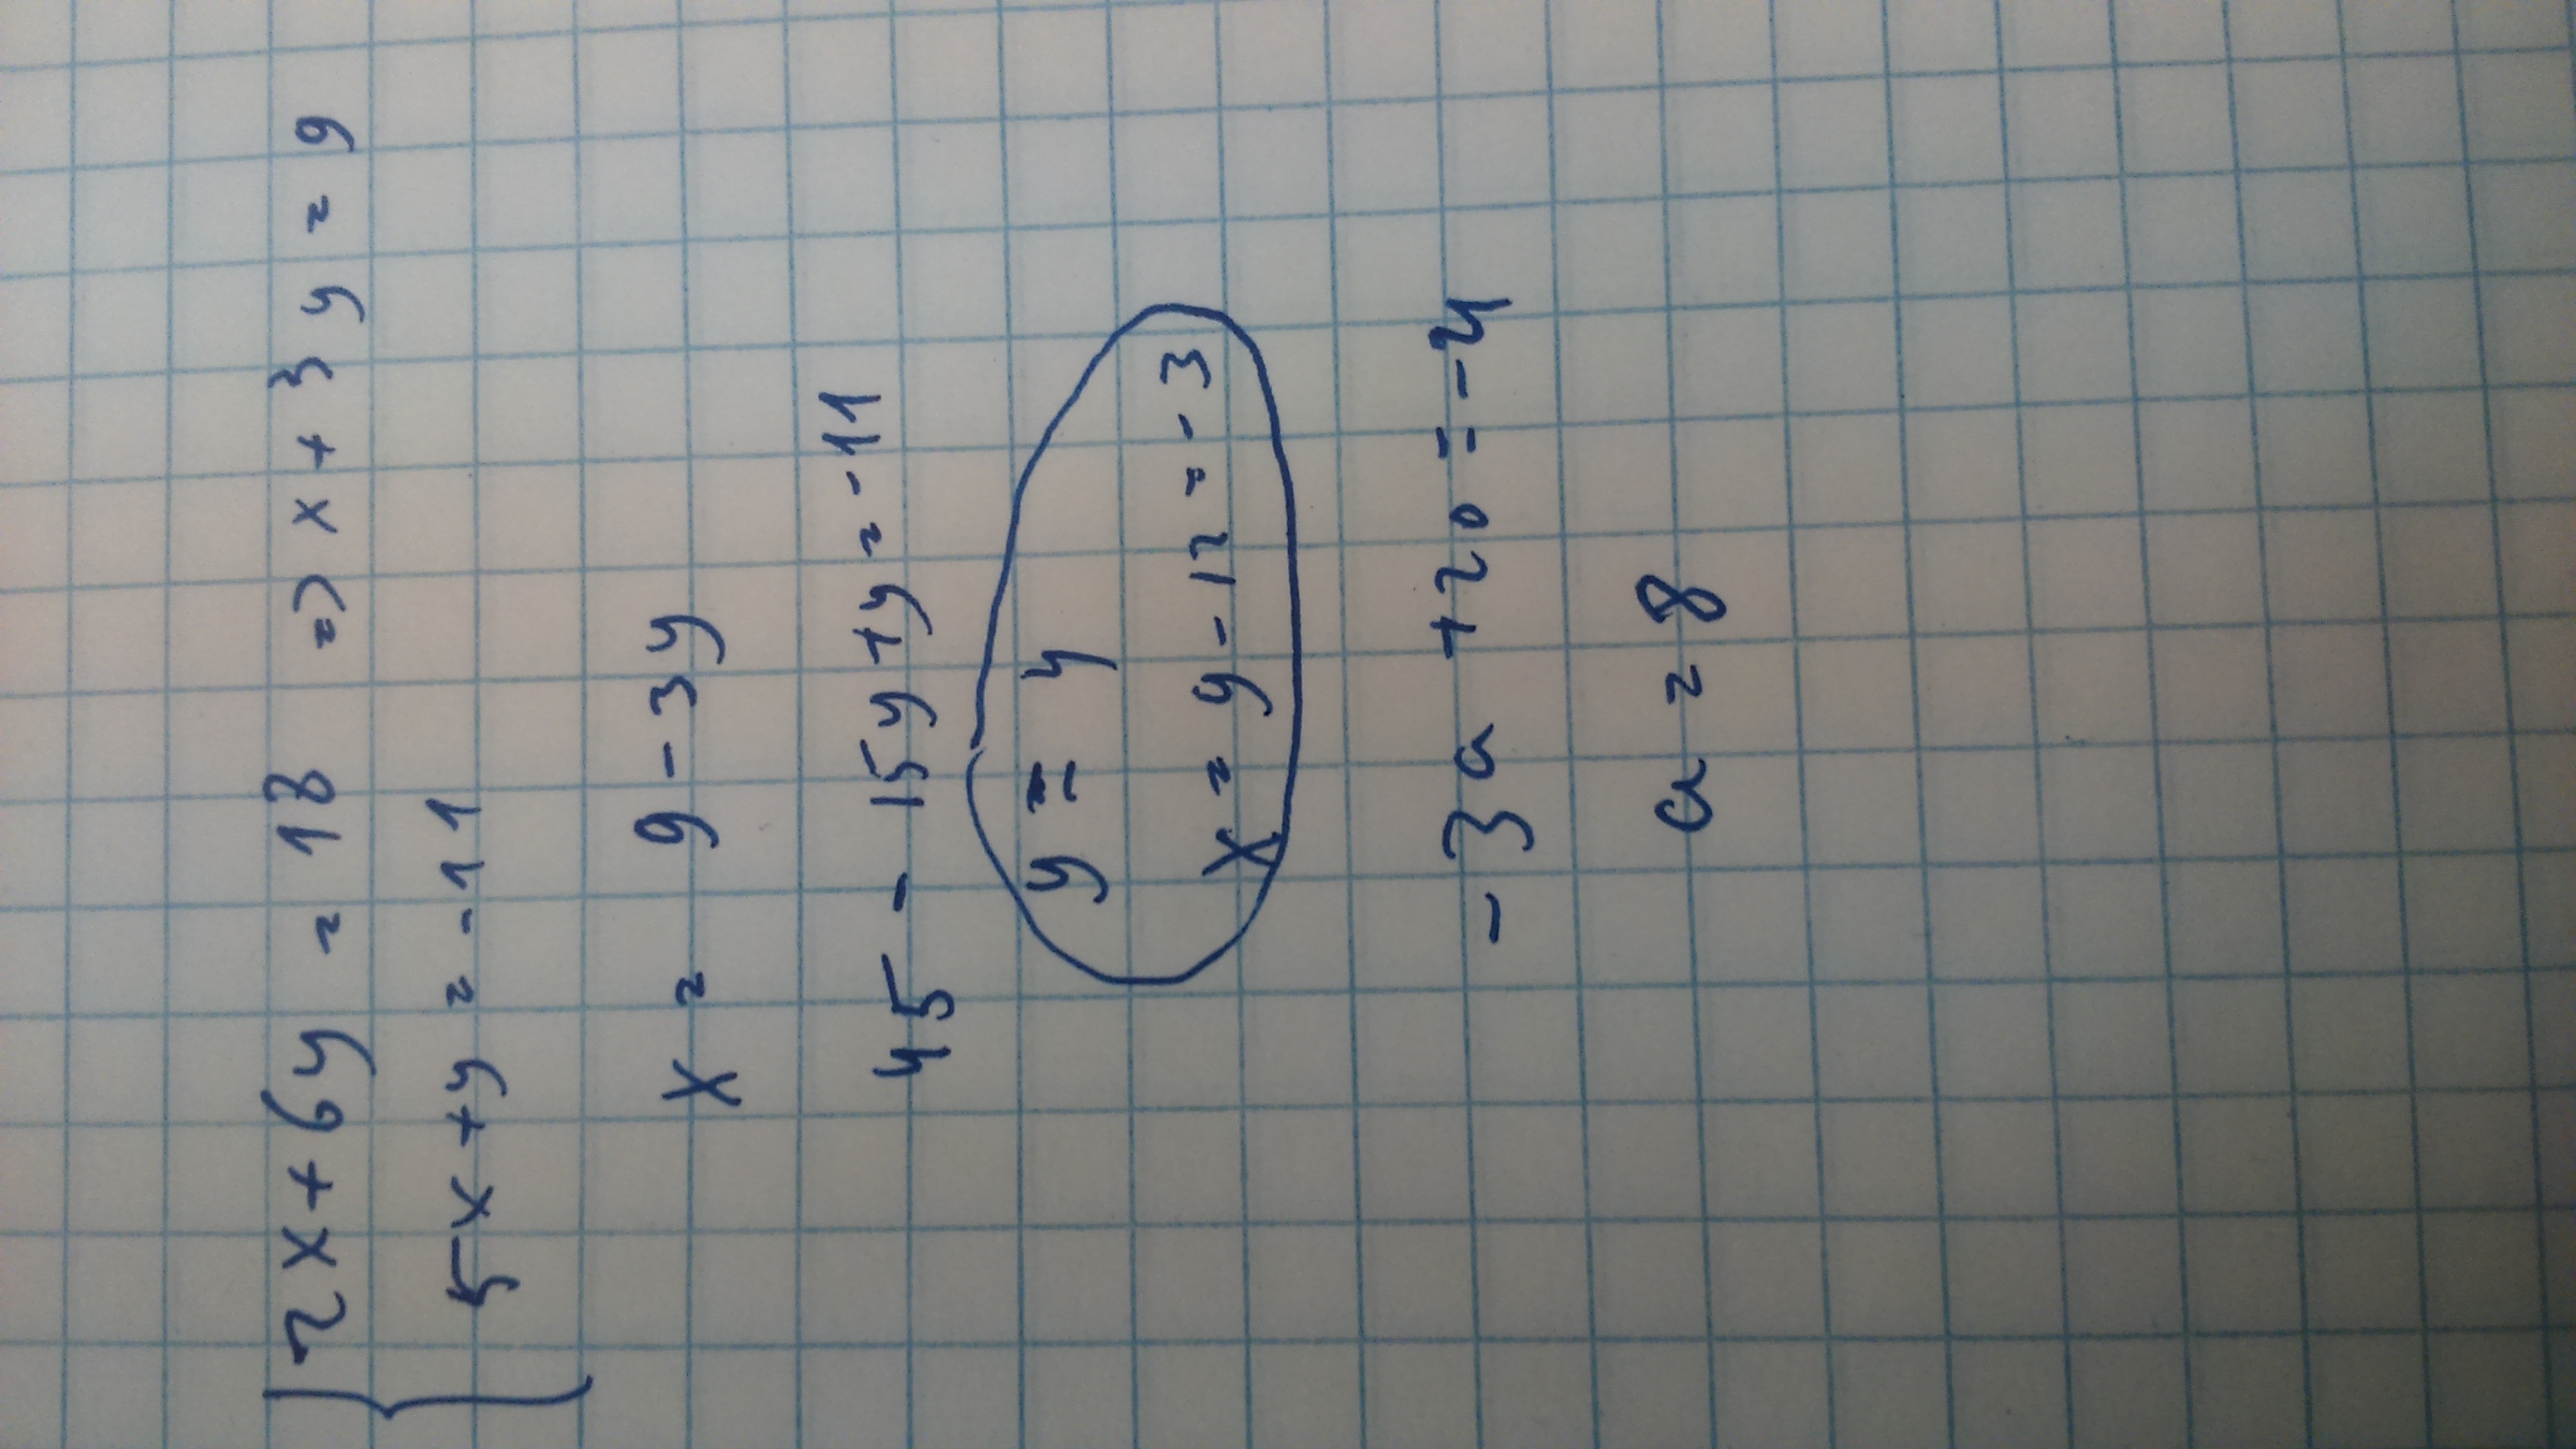 2x+6y = 18 => x+3y = 9
5x+y = -11
x = 9-3y
45 - 15y+y = -11
y = 4
x = 9-12 = -3
-3a +20 = -4
a = 8